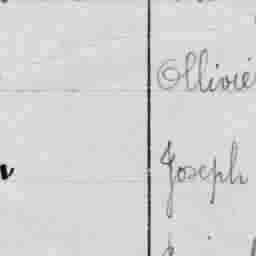 Ollivié
Joseph